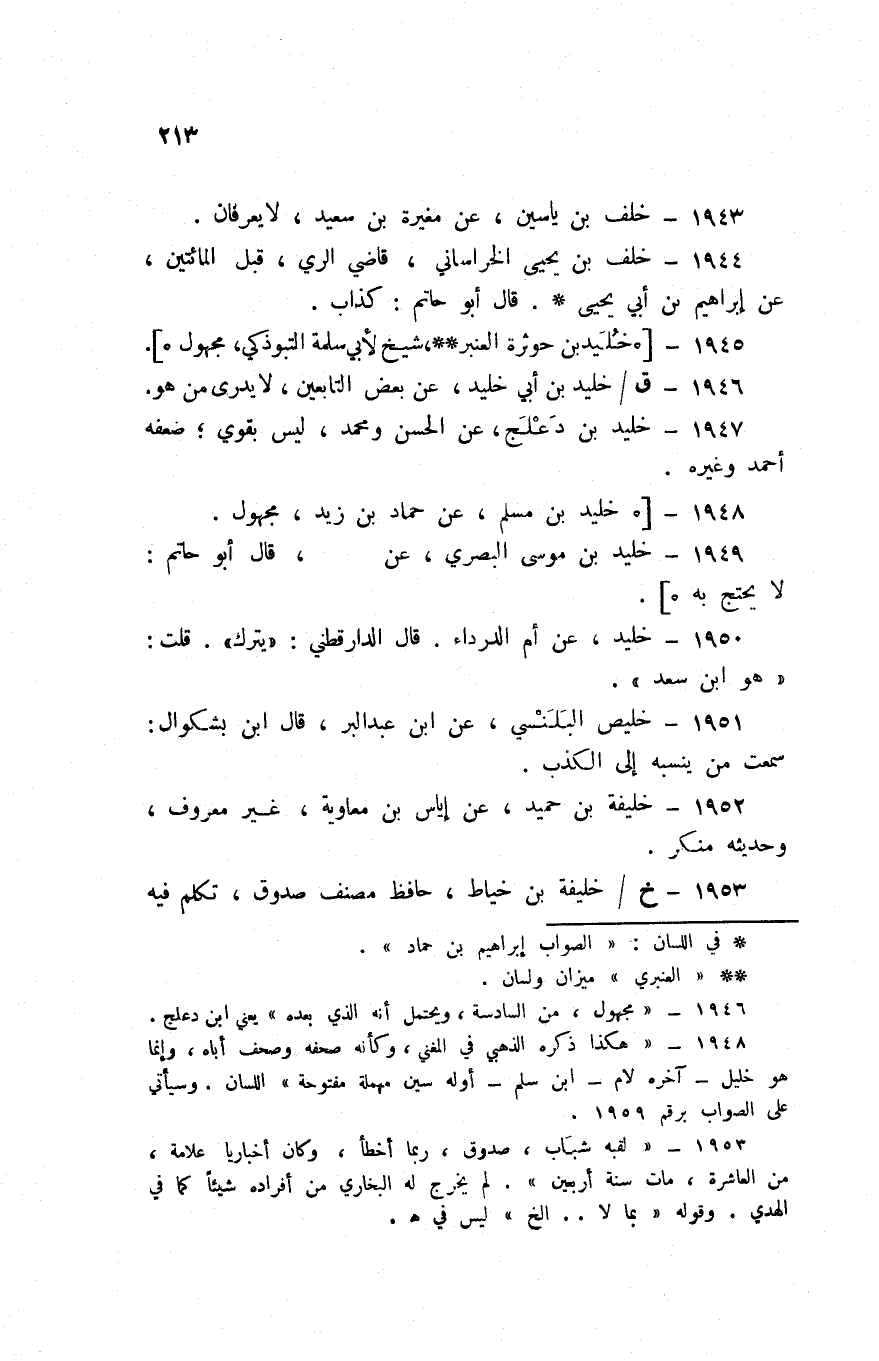 ٢١٣
١٩٤٣ – خلف بن ياسين ، عن مغيرة بن سعيد ، لا يعرفان .
١٩٤٤ – خلف بن يحيى الخراساني ، قاضي الري ، قبل المائتين ،
عن إبراهيم بن أبي يحيى * . قال أبو حاتم : كذاب .
١٩٤٥ – [٥ خُلَيد بن حوثرة العنبر**، شيخ لأبي سلمة التبوذكي، مجهول ٥].
١٩٤٦ – ق / خليد بن أبي خليد ، عن بعض التابعين ، لا يدرى من هو.
١٩٤٧ – خليد بن دَعْلَج، عن الحسن ومحمد ، ليس بقوي ؛ ضعفه
أحمد وغيره .
١٩٤٨ – [٥ خليد بن مسلم ، عن حماد بن زيد ، مجهول .
١٩٤٩ – خليد بن موسى البصري ، عن ، قال أبو حاتم :
لا يحتج به ٥] .
١٩٥٠ – خليد ، عن أم الدرداء . قال الدارقطني : «يترك» . قلت :
« هو ابن سعد » .
١٩٥١ – خليص البَلَنْسي ، عن ابن عبدالبر ، قال ابن بشكوال :
سمعت من ينسبه إلى الكذب .
١٩٥٢ – خليفة بن حميد ، عن إياس بن معاوية ، غير معروف ،
وحديثه منكر .
١٩٥٣ – خ / خليفة بن خياط ، حافظ مصنف صدوق ، تكلم فيه
* في اللسان : « الصواب إبراهيم بن حماد » .
** « العنبري » ميزان ولسان .
١٩٤٦ – « مجهول ، من السادسة ، ويحتمل أنه الذي بعده » يعني ابن دعلج .
١٩٤٨ – « هكذا ذكره الذهبي في المغني ، وكأنه صحفه وصحف أباه ، وإنما
هو خليل – آخره لام – ابن سلم – أوله سين مهملة مفتوحة » اللسان . وسيأتي
على الصواب برقم ١٩٥٩ .
١٩٥٣ – « لقبه شبَاب ، صدوق ، ربما أخطأ ، وكان أخباريا علامة ،
من العاشرة ، مات سنة أربعين » . لم يخرج له البخاري من أفراده شيئاً كما في
الهدي . وقوله « بما لا . . الخ » ليس في ه .